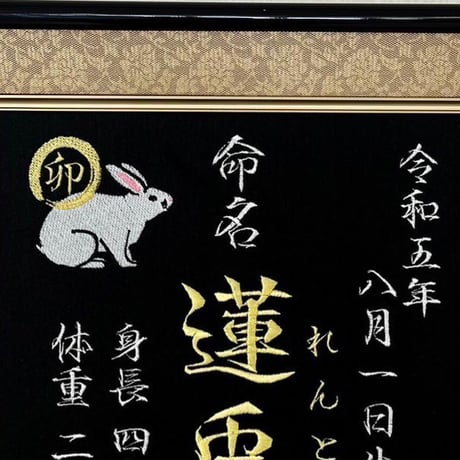 令和五年
八月一日生
れんと
命名
蓮
身長四
体重二
卯